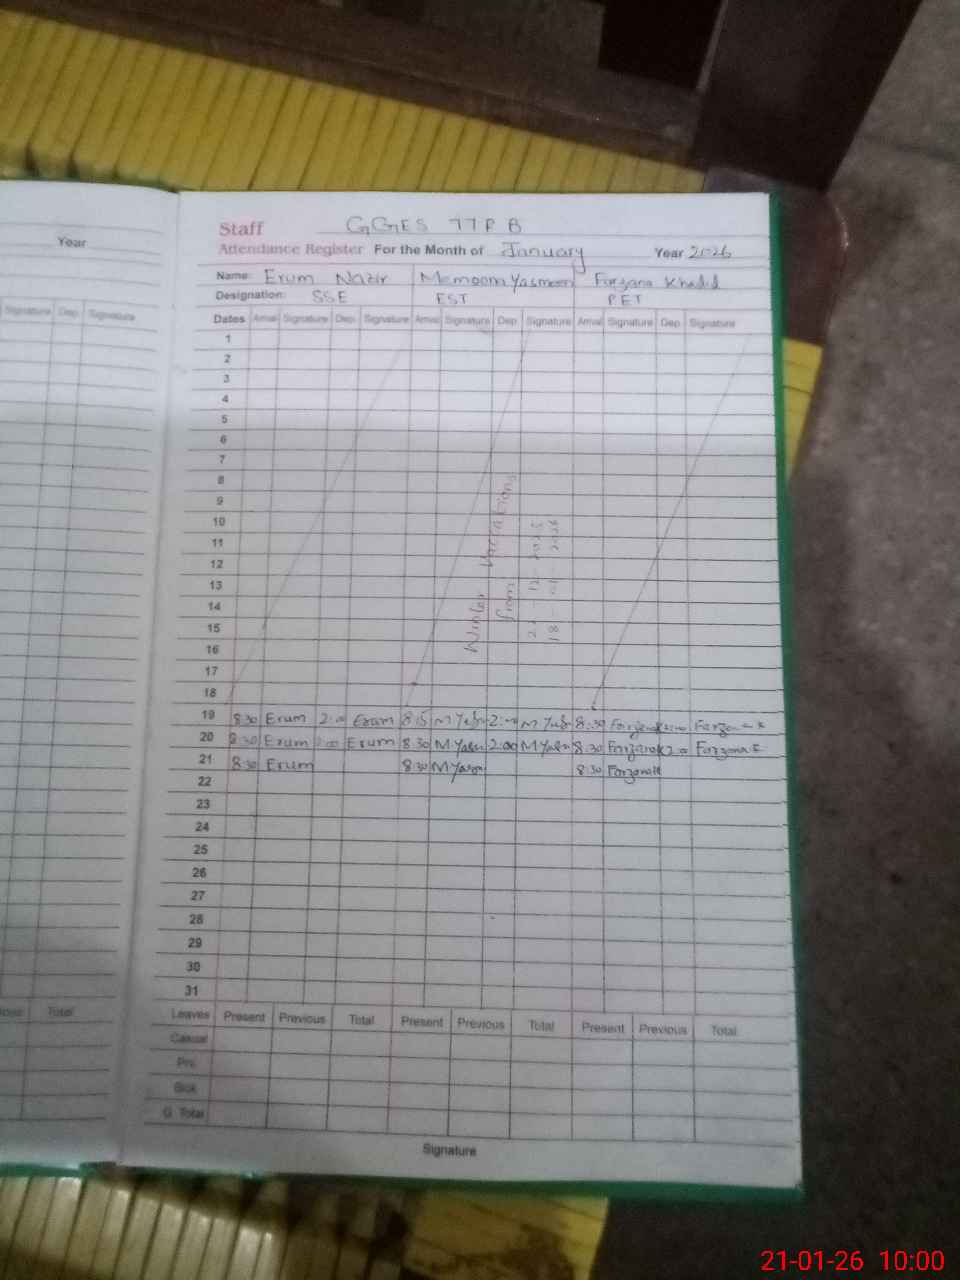 Year
Signature Dep. Signature
Total
Staff GGES 77 P B
Attendance Register For the Month of January Year 2026
Name: Erum Nazir Memoom Yasmeen Farzana Khalid
Designation: SSE EST PET
Dates Arrival Signature Dep. Signature Arrival Signature Dep. Signature Arrival Signature Dep. Signature
1
2
3
4
5
6
7
8
9
10
11
12
13
14
15
16
17
18
Winter Vacations
from
12 - 2025
18 - 01 - 2026
19 8:30 Erum 2:00 Erum 8:15 M Yasn 2:00 M Yasn 8:30 Farzanak 2:00 Farzana K
20 8:30 Erum 2:00 Erum 8:30 M Yasn 2:00 M Yasn 8:30 Farzanak 2:00 Farzana K
21 8:30 Erum 8:30 M Yasn 8:30 Farzanak
22
23
24
25
26
27
28
29
30
31
Leaves Present Previous Total Present Previous Total Present Previous Total
Casual
Pri.
Sick
G. Total
Signature
21-01-26 10:00